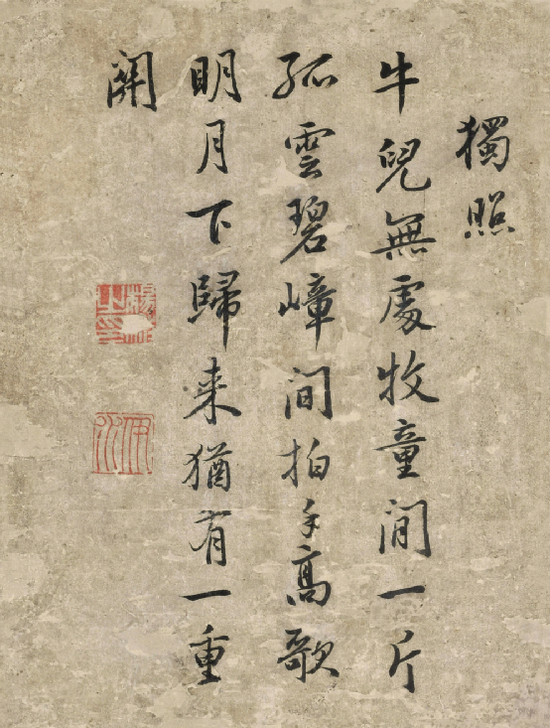 獨照
牛兒無處牧童閒一片
孤雲碧嶂間拍手高歌
明月下歸来猶有一重
関